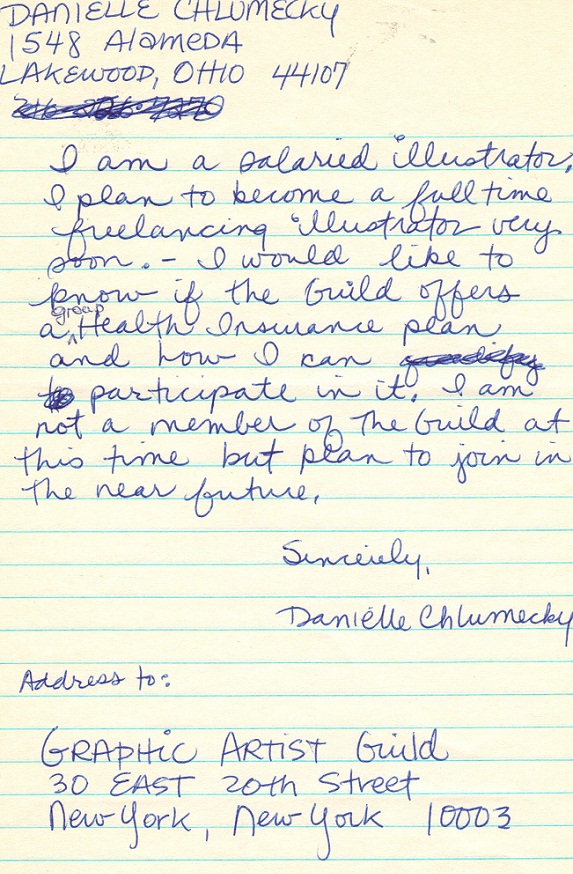 DANIELLE CHLUMECKY
1548 ALAMEDA
LAKEWOOD, OHIO 44107
I am a salaried illustrator.
I plan to become a full time
freelancing illustrator very
soon. - I would like to
know if the Guild offers
a group Health Insurance plan
and how I can
participate in it. I am
not a member of the Guild at
this time but plan to join in
the near future.
Sincerely,
Danielle Chlumecky
Address to:
GRAPHIC ARTIST Guild
30 EAST 20th Street
New York, New York 10003